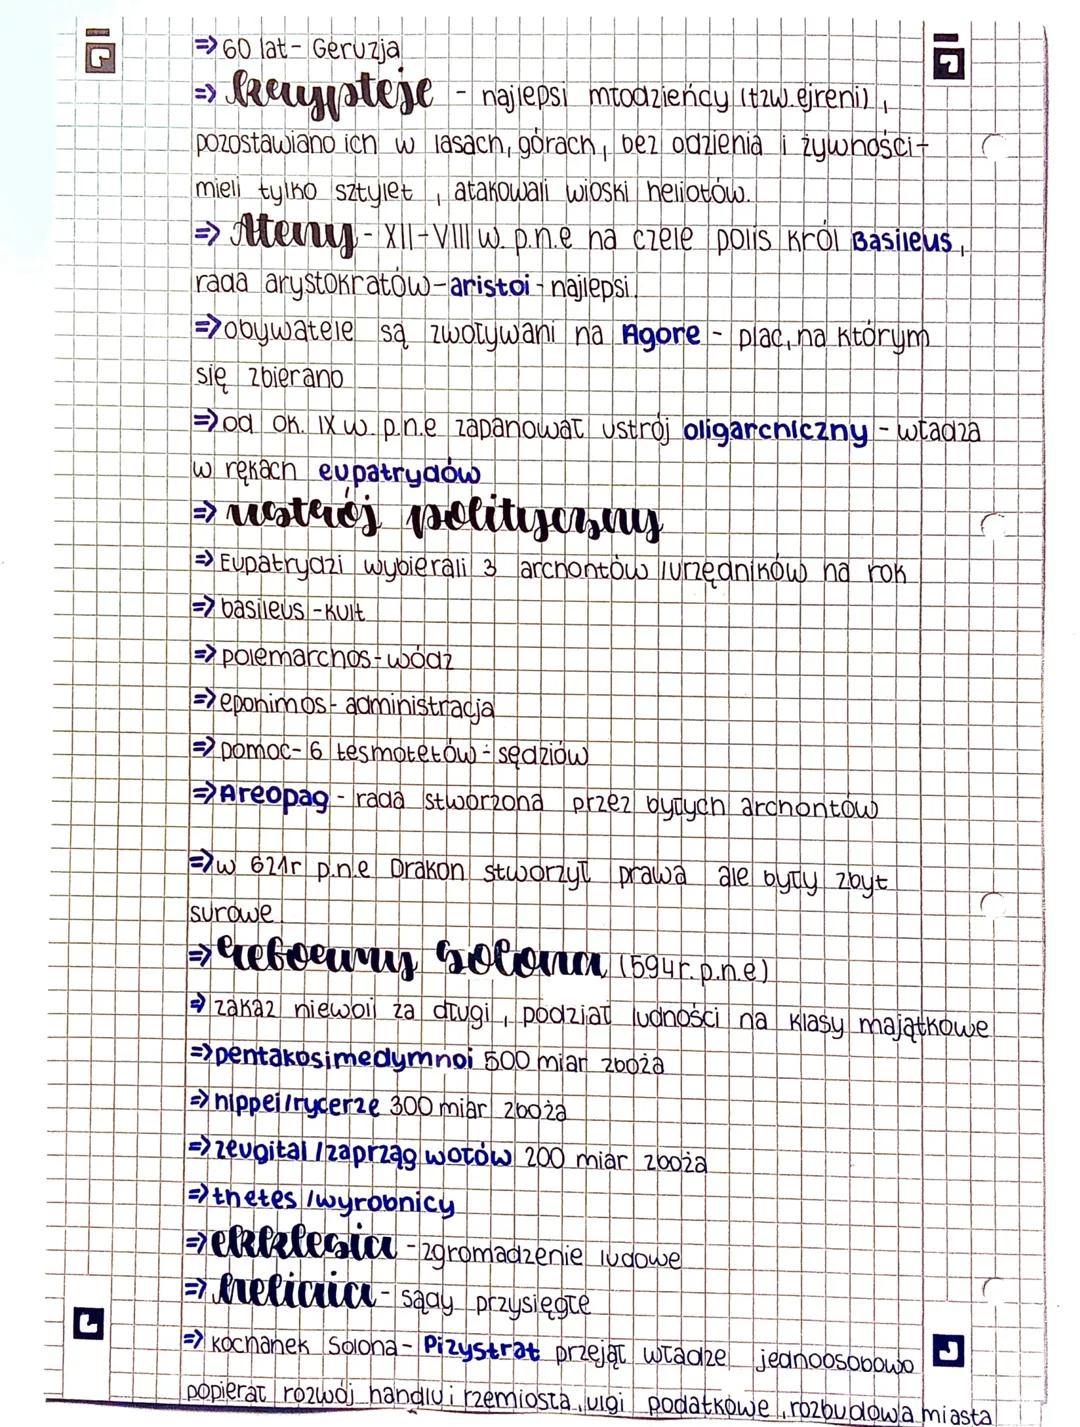 ⇒ 60 lat - Geruzja
⇒ krypteje - najlepsi młodzieńcy (tzw. ejreni),
pozostawiano ich w lasach, górach, bez odzienia i żywności -
mieli tylko sztylet, atakowali wioski heliotów.
⇒ Ateny - XII-VIII w. p.n.e na czele polis król Basileus,
rada arystokratów - aristoi - najlepsi.
⇒ obywatele są zwoływani na Agore - plac, na którym
się zbierano
⇒ od ok. IX w. p.n.e zapanował ustrój oligarchiczny - władza
w rękach eupatrydów
⇒ ustrój polityczny
⇒ Eupatrydzi wybierali 3 archontów /urzędników na rok
⇒ basileus - kult
⇒ polemarchos - wódz
⇒ eponimos - administracja
⇒ pomoc - 6 tesmotetów - sędziów
⇒ Areopag - rada stworzona przez byłych archontów
⇒ w 621r p.n.e Drakon stworzył prawa ale były zbyt
surowe
⇒ reformy Solona (594r. p.n.e)
⇒ zakaz niewoli za długi, podział ludności na klasy majątkowe
⇒ pentakosimedymnoi 500 miar zboża
⇒ hippei/rycerze 300 miar zboża
⇒ zeugitai /zaprząg wołów 200 miar zboża
⇒ thetes /wyrobnicy
⇒ ekklesia - zgromadzenie ludowe
⇒ heliaia - sądy przysięgłe
⇒ kochanek Solona - Pizystrat przejął władze jednoosobowo
popierał rozwój handlu i rzemiosła, ulgi podatkowe, rozbudowa miasta